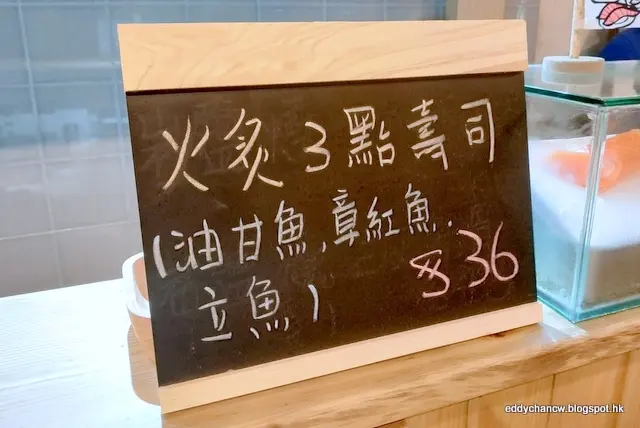 火炙3點壽司
(油甘魚,章紅魚.
立魚)
$36
eddychancw.blogspot.hk